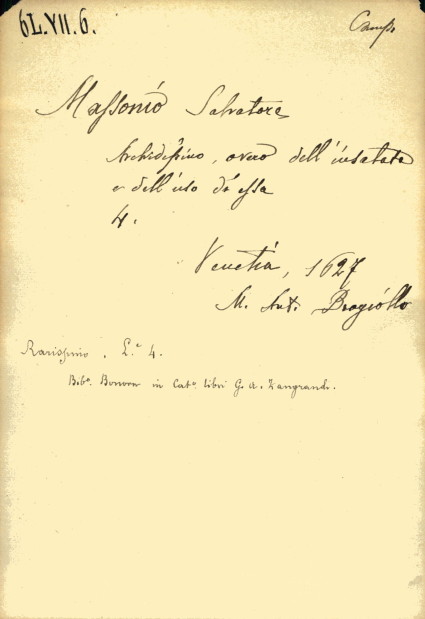 6L.VII.6.
Massonio Salvatore
Archidipno, overo dell'insalata
e dell'uso di essa
4.
Venetia, 1627
M. Ant. Brogiollo
Rarissimo. L.e 4.
Bibo. in Cato. libri G. A. Zangrandi.